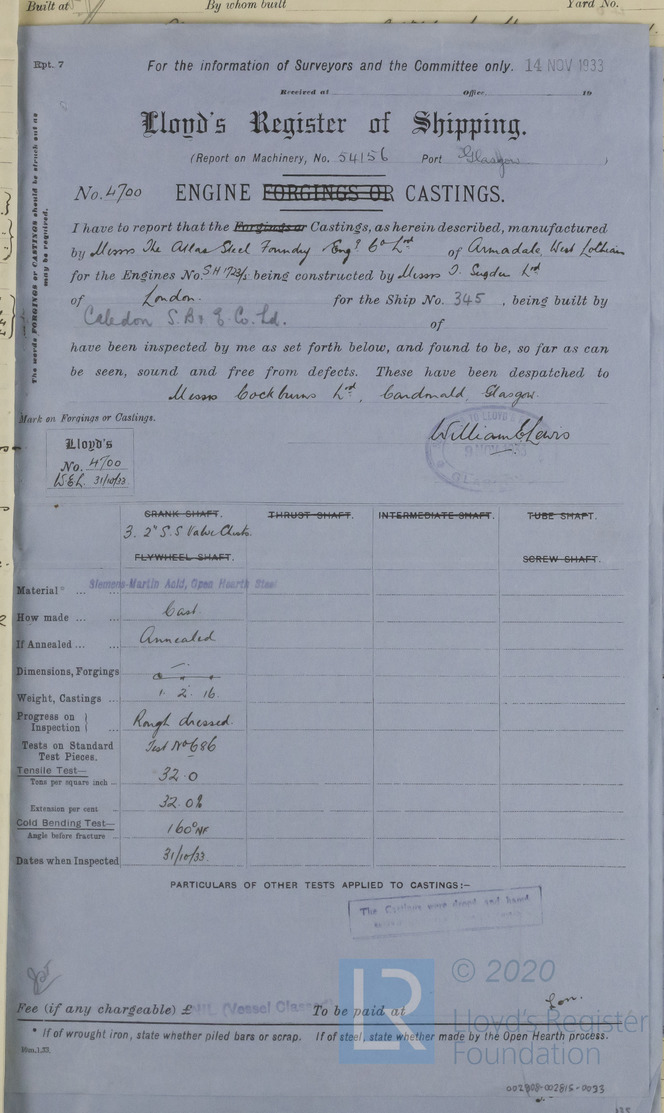 Built at
By whom built
Yard No.
Rpt. 7
For the information of Surveyors and the Committee only. 14 NOV 1933
Received at Office 19
Lloyd's Register of Shipping.
(Report on Machinery, No. 54156 Port Glasgow )
No. 4700 ENGINE FORGINGS OR CASTINGS.
The words FORGINGS or CASTINGS should be struck out as may be required.
I have to report that the Forgings or Castings, as herein described, manufactured
by Messrs The Atlas Steel Foundry Engg Co Ld of Armadale, West Lothian
for the Engines No. SH 1723/5 being constructed by Messrs T. Sugden Ld
of London. for the Ship No. 345 , being built by
Caledon S.B. & E. Co. Ld. of
have been inspected by me as set forth below, and found to be, so far as can
be seen, sound and free from defects. These have been despatched to
Messrs Cockburns Ld, Cardonald, Glasgow.
Mark on Forgings or Castings.
William E Lewis
Lloyd's
No. 4700
W.E.L. 31/10/33
CRANK SHAFT. THRUST SHAFT. INTERMEDIATE SHAFT. TUBE SHAFT.
3. 2" S.S Valve Chests.
FLYWHEEL SHAFT. SCREW SHAFT.
Material* ... ... Siemens-Martin Acid, Open Hearth Steel
How made ... ... Cast
If Annealed ... ... Annealed
Dimensions, Forgings
Weight, Castings ... 1. 2. 16.
Progress on Inspection ... Rough dressed
Tests on Standard Test Pieces. Test No 686
Tensile Test—
Tons per square inch ... 32.0
Extension per cent 32.0%
Cold Bending Test—
Angle before fracture ... 160° NF
Dates when Inspected 31/10/33.
PARTICULARS OF OTHER TESTS APPLIED TO CASTINGS:–
The Castings were droped and
© 2020
Lloyd's Register
Foundation
LR
Fee (if any chargeable) £ NIL (Vessel Classed) To be paid at Lon.
* If of wrought iron, state whether piled bars or scrap. If of steel, state whether made by the Open Hearth process.
002808-002815-0093